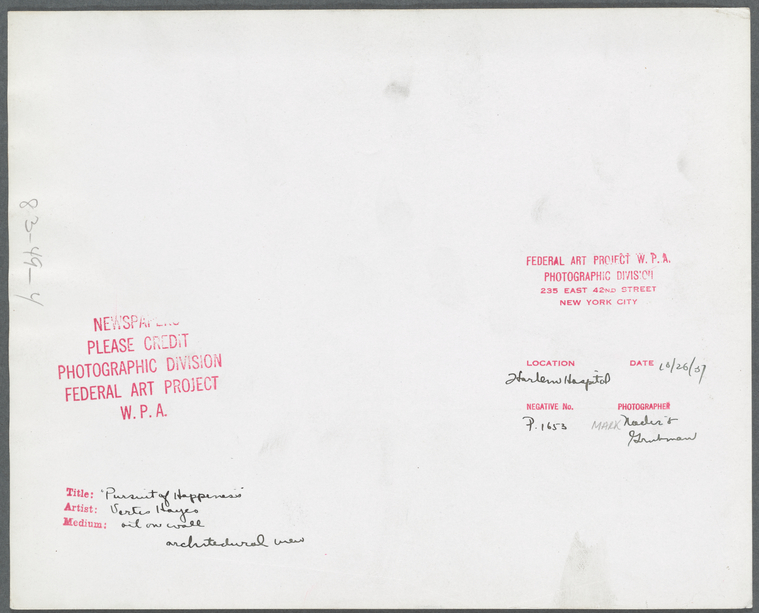 83-49-4
FEDERAL ART PROJECT W.P.A.
PHOTOGRAPHIC DIVISION
235 EAST 42ND STREET
NEW YORK CITY
NEWSPAPERS
PLEASE CREDIT
PHOTOGRAPHIC DIVISION
FEDERAL ART PROJECT
W.P.A.
LOCATION DATE 10/26/37
Harlem Hospital
NEGATIVE No. PHOTOGRAPHER
P.1653 MARK Nadir &
Grubman
Title: "Pursuit of Happeness"
Artist: Vertis Hayes
Medium: oil on wall
architectural view